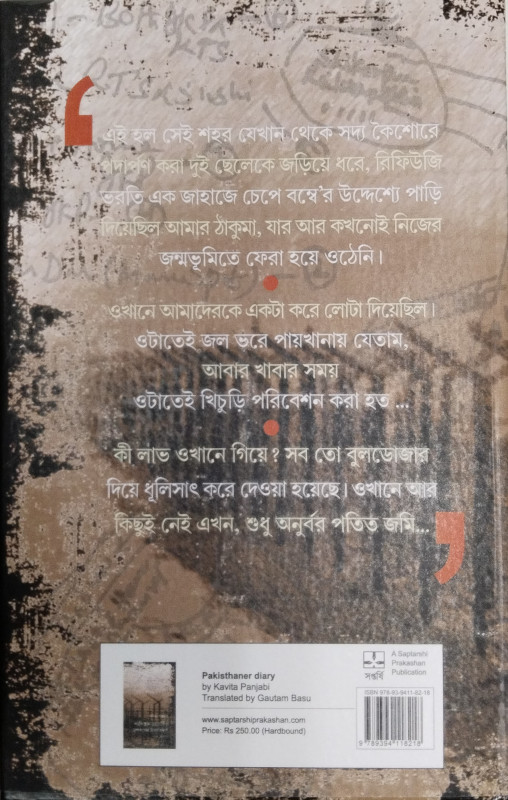 এই হল সেই শহর যেখান থেকে সদ্য কৈশোরে
পদার্পণ করা দুই ছেলেকে জড়িয়ে ধরে, রিফিউজি
ভরতি এক জাহাজে চেপে বম্বে'র উদ্দেশ্যে পাড়ি
দিয়েছিল আমার ঠাকুমা, যার আর কখনোই নিজের
জন্মভূমিতে ফেরা হয়ে ওঠেনি।
ওখানে আমাদেরকে একটা করে লোটা দিয়েছিল।
ওটাতেই জল ভরে পায়খানায় যেতাম,
আবার খাবার সময়
ওটাতেই খিচুড়ি পরিবেশন করা হত ...
কী লাভ ওখানে গিয়ে? সব তো বুলডোজার
দিয়ে ধূলিসাৎ করে দেওয়া হয়েছে। ওখানে আর
কিছুই নেই এখন, শুধু অনুর্বর পতিত জমি...
Pakisthaner diary
by Kavita Panjabi
Translated by Gautam Basu
www.saptarshiprakashan.com
Price: Rs 250.00 (Hardbound)
সপ্তর্ষি
A Saptarshi
Prakashan
Publication
ISBN 978-93-9411-82-18
9 789394 118218